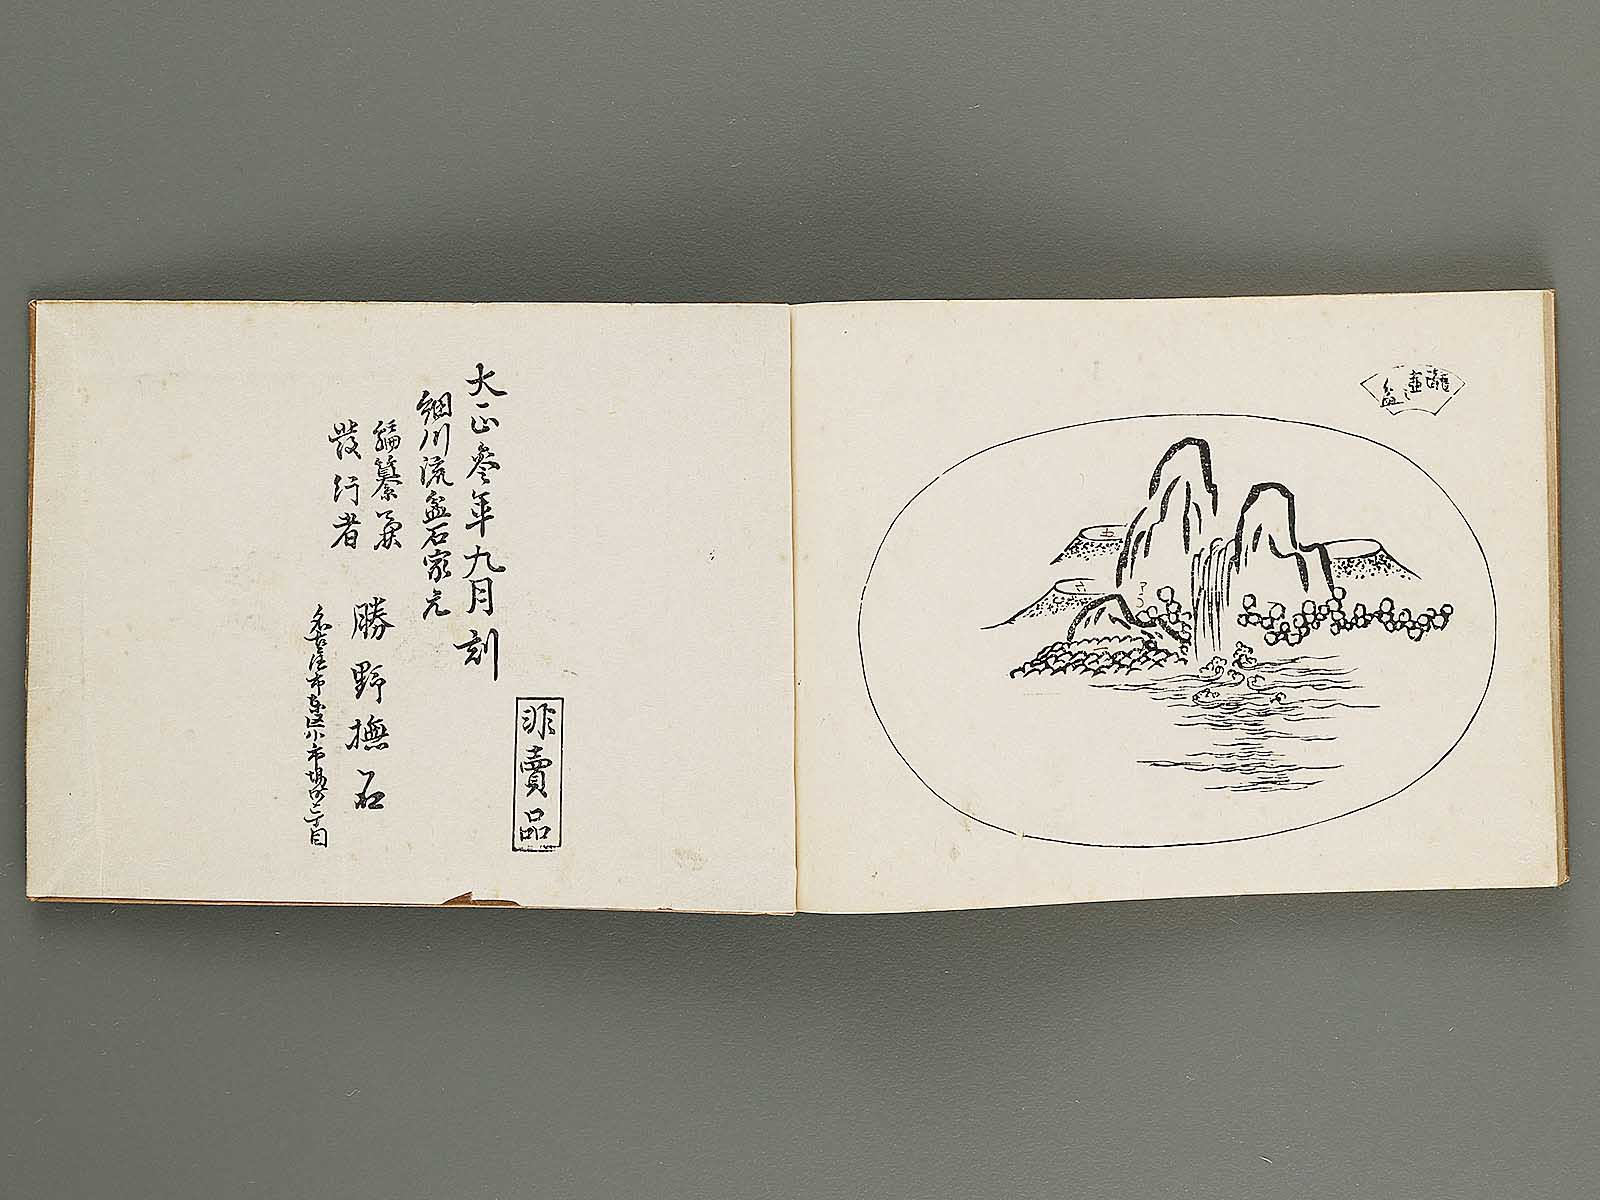 大正参年九月刻
細川流盆石家元
編纂兼
発行者
勝野撫石
名古屋市東区小市場町二丁目
非賣品